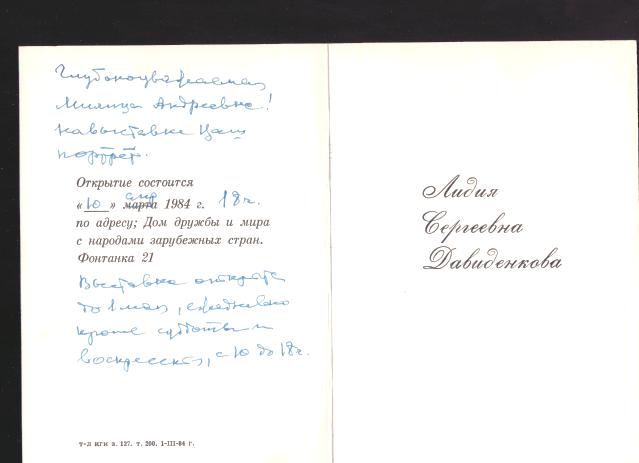 Глубокоуважаемая
Милица Андреевна!
на выставке Ваш
портрет.
Открытие состоится
«10» марта апр 1984 г. 18 ч.
по адресу; Дом дружбы и мира
с народами зарубежных стран.
Фонтанка 21
Выставка открыта
до 1 мая, ежедневно
кроме субботы и
воскресенья, с 10 до 18 г.
т-л кги з. 127. т. 200. 1-III-84 г.
Лидия
Сергеевна
Давиденкова